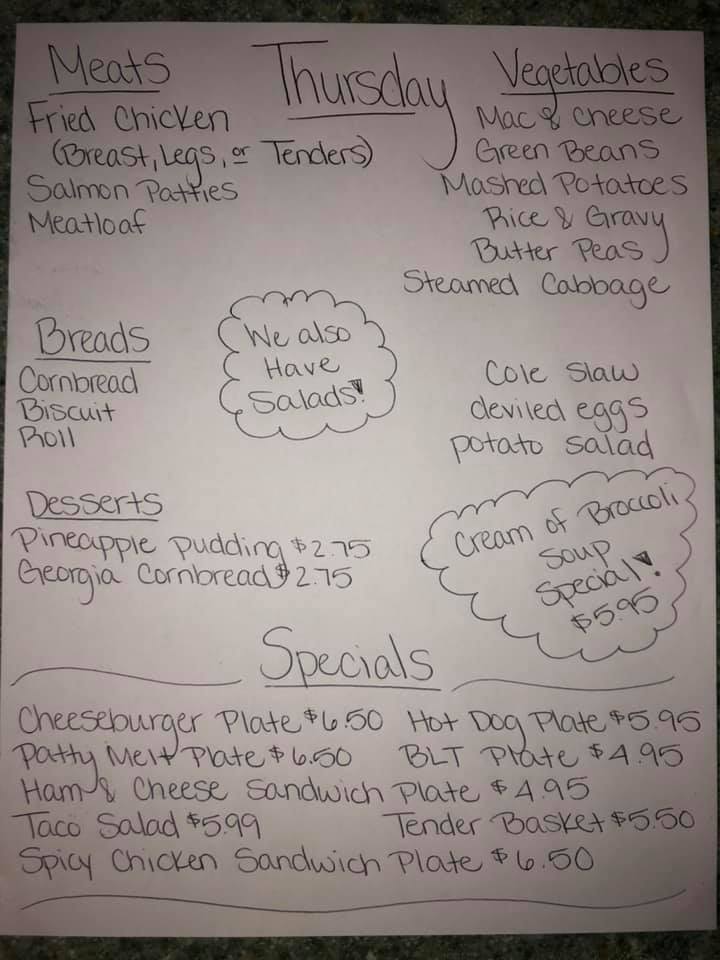 Thursday
Meats
Fried Chicken
(Breast, Legs, or Tenders)
Salmon Patties
Meatloaf
Vegetables
Mac & Cheese
Green Beans
Mashed Potatoes
Rice & Gravy
Butter Peas
Steamed Cabbage
Cole Slaw
deviled eggs
potato salad
Breads
Cornbread
Biscuit
Roll
We also
Have
Salads!
Desserts
Pineapple Pudding $2.75
Georgia Cornbread $2.75
Cream of Broccoli
Soup
Special!
$5.95
Specials
Cheeseburger Plate $6.50 Hot Dog Plate $5.95
Patty Melt Plate $6.50 BLT Plate $4.95
Ham & Cheese Sandwich Plate $4.95
Taco Salad $5.99 Tender Basket $5.50
Spicy Chicken Sandwich Plate $6.50